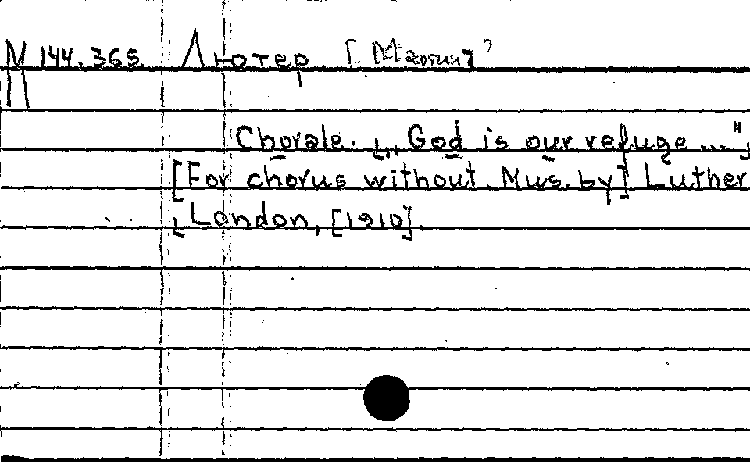 М 144.365. Лютер [Мартин]
Chorale. [„God is our refuge ..."]
[For chorus without Mus. by] Luther
[London, [1910].